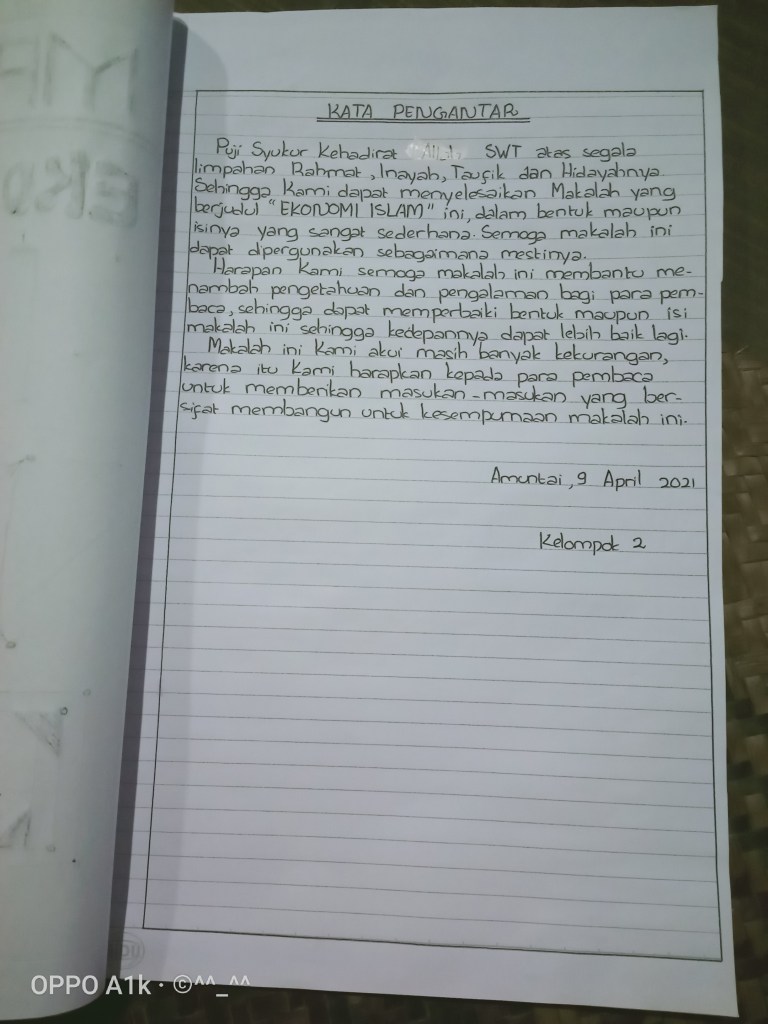 KATA PENGANTAR
Puji Syukur Kehadirat Allah SWT atas segala
limpahan Rahmat, Inayah, Taufik dan Hidayahnya
Sehingga Kami dapat menyelesaikan Makalah yang
berjudul "EKONOMI ISLAM" ini, dalam bentuk maupun
isinya yang sangat sederhana. Semoga makalah ini
dapat dipergunakan sebagaimana mestinya.
Harapan Kami semoga makalah ini membantu me-
nambah pengetahuan dan pengalaman bagi para pem-
baca, sehingga dapat memperbaiki bentuk maupun isi
makalah ini sehingga kedepannya dapat lebih baik lagi.
Makalah ini Kami akui masih banyak kekurangan,
karena itu Kami harapkan kepada para pembaca
untuk memberikan masukan-masukan yang ber-
sifat membangun untuk kesempurnaan makalah ini.
Amuntai, 9 April 2021
Kelompok 2
OPPO A1k · ©^^_^^